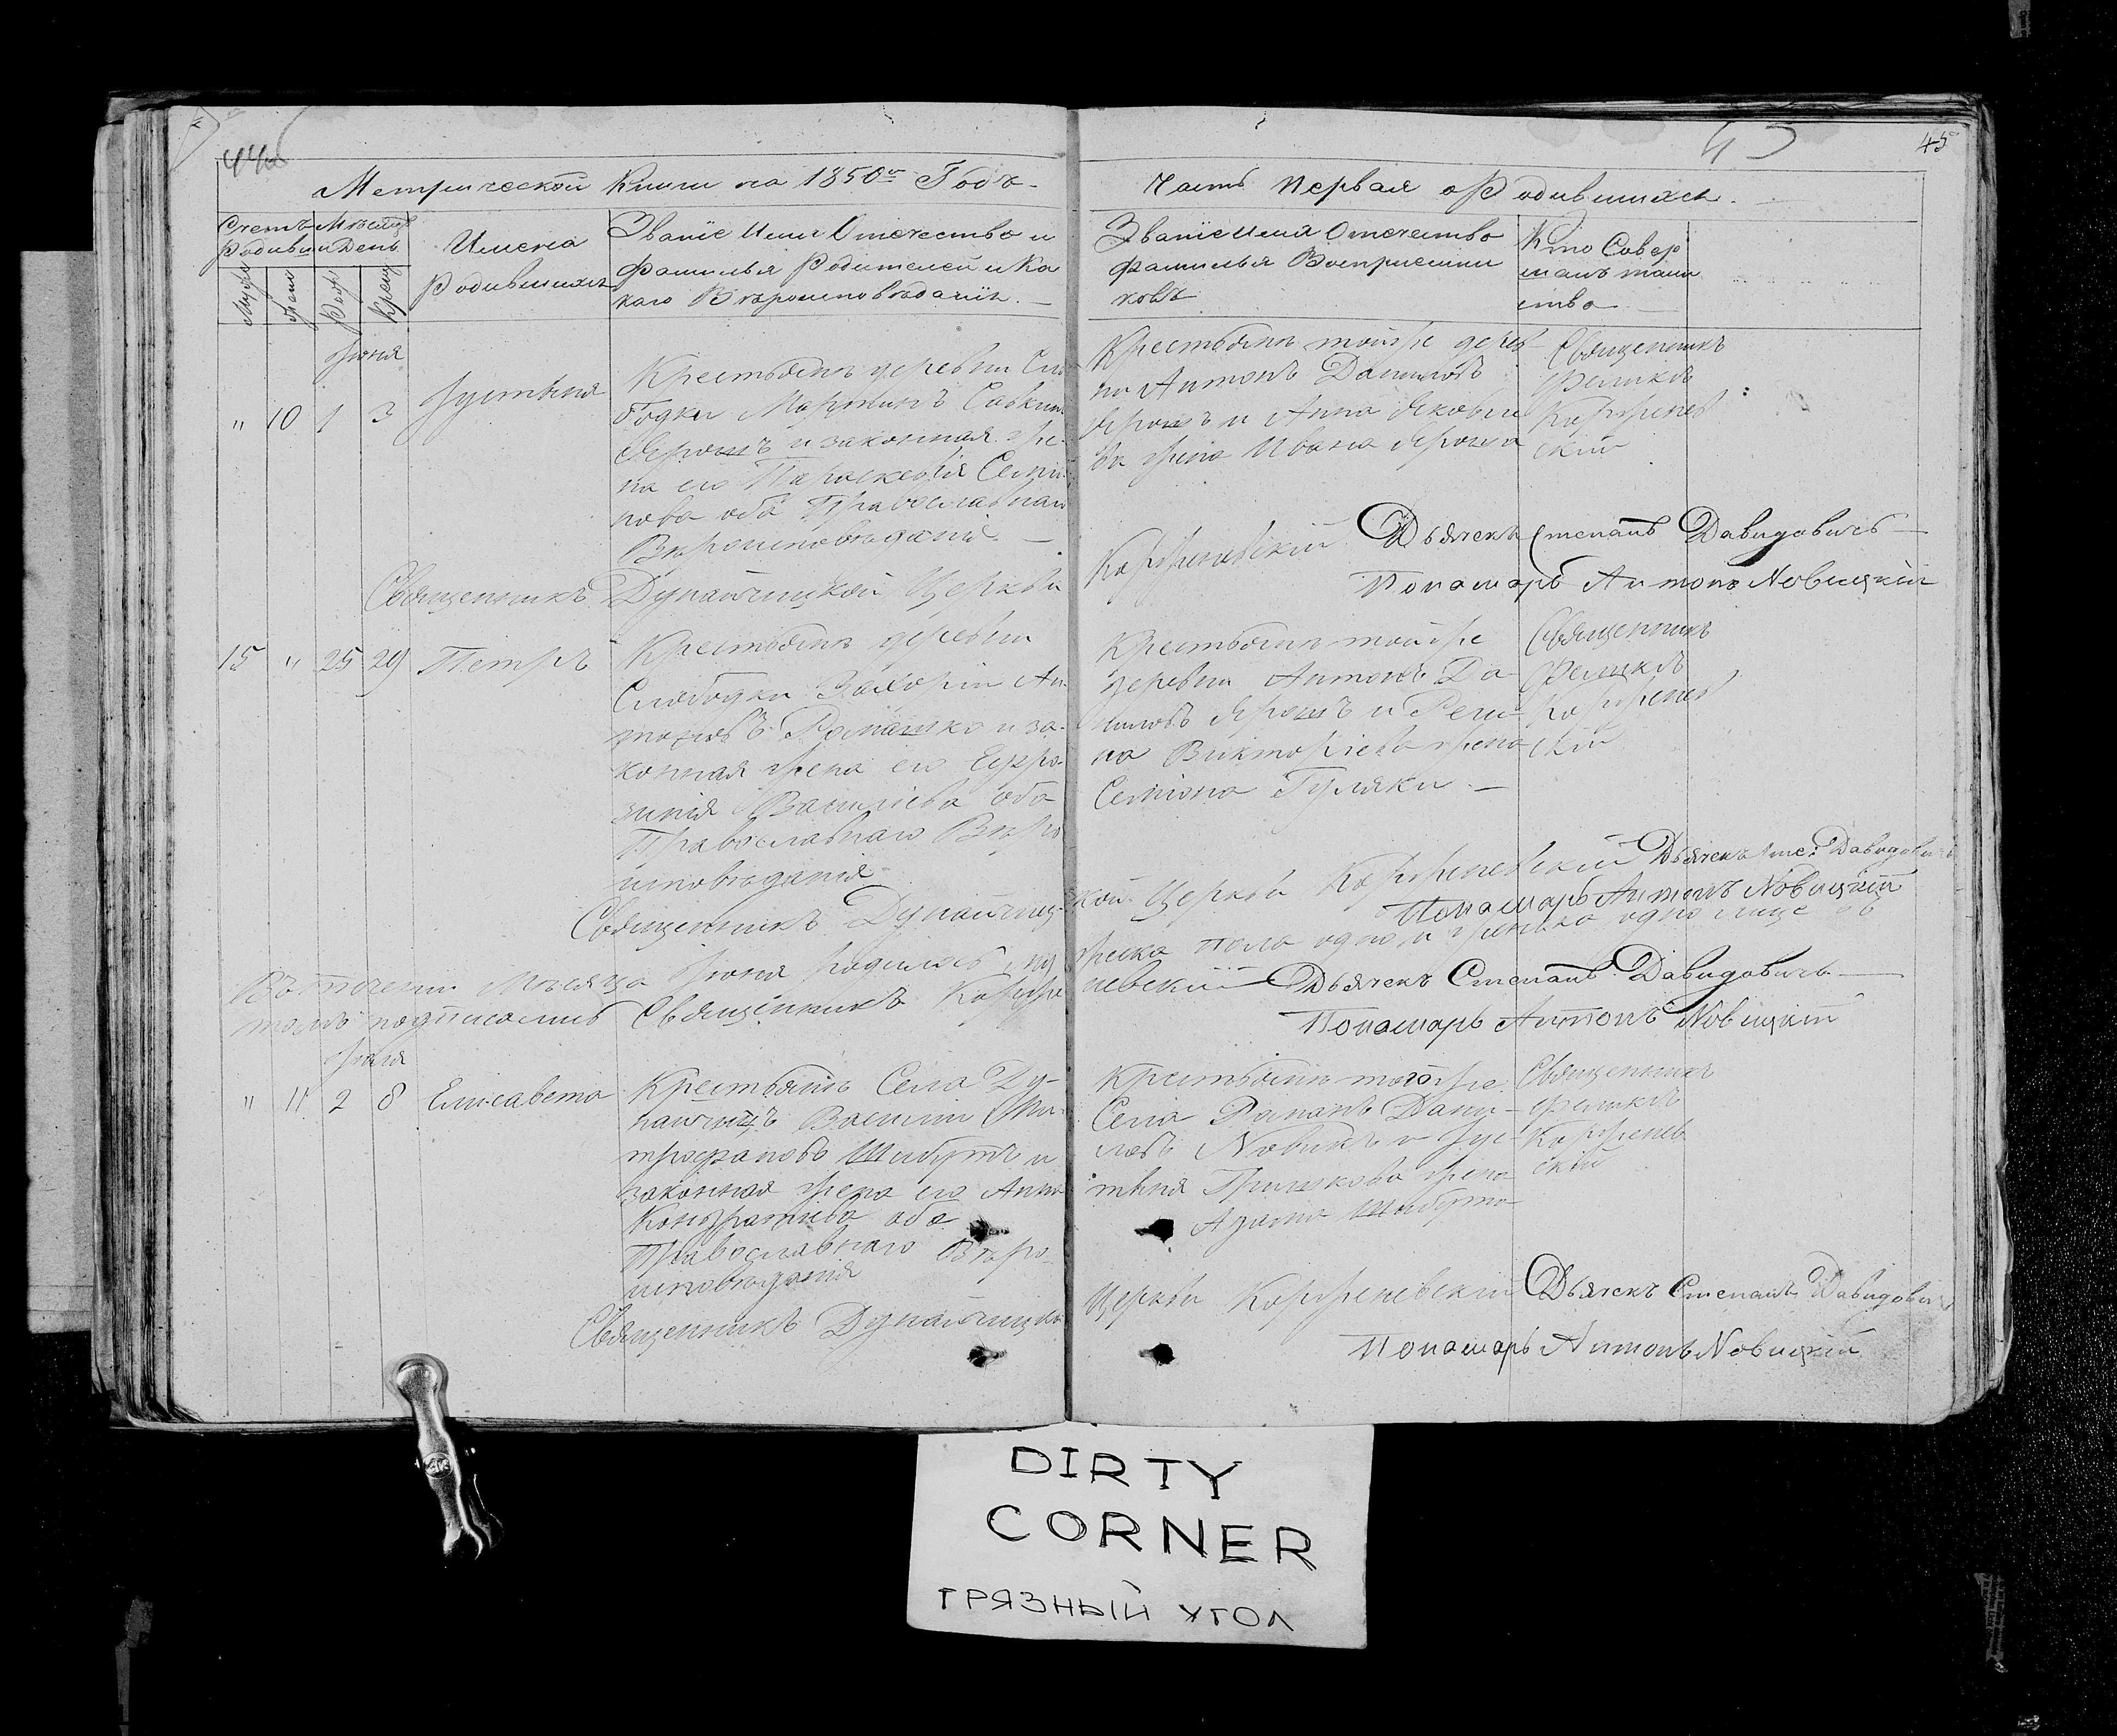 44об
45
45
Метрической Книги на 1850й Годъ.
Часть Первая о Родившихся.
Счетъ Родивш
Мѣсяцъ и День
Имена Родившихся
Званіе Имя Отечество и
Фамилья Родителей и Ка
каго Вѣроисповѣданія.
Званіе Имя Отечество
Фамилья Воспріемни
ковъ
Кто Совер
шалъ таин
ство
Муж
Жен
Рож
Крещ
Іюня
" 10 1 3 Іустинія
Крестьянъ деревни Сло
бодки Мартинъ Савкинъ
Ярошъ и законная же-
на его Параскевія Семіо
нова оба Православнаго
Вѣроисповѣданія. —
Крестьянъ тойже дерев
ни Антонъ Даниловъ
Ярошъ и Анна Яковле
ва жена Ивана Яроша
Священникъ
Феликсъ
Корженев
скій
Священникъ Дунайчицкой Церкви
Корженевскій Дьячекъ Степанъ Давидовичъ
Понамарь Антонъ Новицкій
15 " 25 29 Петръ
Крестьянъ деревни
Слободки Захарій Ан-
тоновъ Романко и за-
конная жена его Евфро-
зинія Васильева оба
Православнаго Вѣро
исповѣданія
Крестьянъ тойже
деревни Антонъ Да-
ниловъ Ярошъ и Реги-
на Викторіева жена
Семіона Гуляки. —
Священникъ
Феликсъ
Корженев
скій
Священникъ Дунайчиц-
кой Церкви Корженевскій Дьячекъ Сте: Давидовичъ
Понамарь Антонъ Новицкій
Въ теченіи Мѣсяца Іюня родилось муж
жеска пола одно и женска одно лице въ
томъ подписались Священникъ Корже
невскій Дьячекъ Степанъ Давидовичъ
Понамарь Антонъ Новицкій
Іюля
" 11 2 8 Елисавета
Крестьянъ Села Ду-
найчицъ Василій Ми-
трофановъ Шибутъ и
законная жена его Анна
Кондратіева оба
Православнаго Вѣро-
исповѣданія
Крестьянъ тогоже
Села Романъ Дани-
ловъ Новикъ и Іус-
тинія Гришкова жена
Адама Шибута
Священникъ
Феликсъ
Корженев
скій
Священникъ Дунайчицкой
Церкви Корженевскій Дьячекъ Степанъ Давидовичъ
Понамарь Антонъ Новицкій
DIRTY
CORNER
ГРЯЗНЫЙ УГОЛ